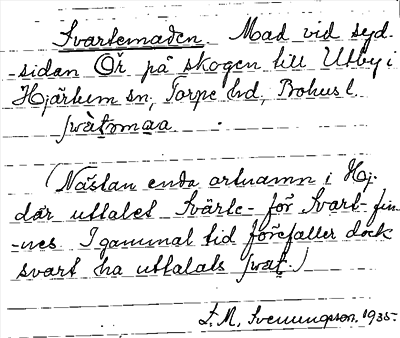 Svartemaden. Mad vid syd-
-sidan Öř på skogen till Utby i
Hjärtum sn, Torpe hd, Bohusl.
(Nästan enda ortnamn i Hj.
där uttalet Svärte- för Svart- fin-
-nes. I gammal tid förefaller dock
svart ha uttalats
L. M. Svenungsson. 1935.